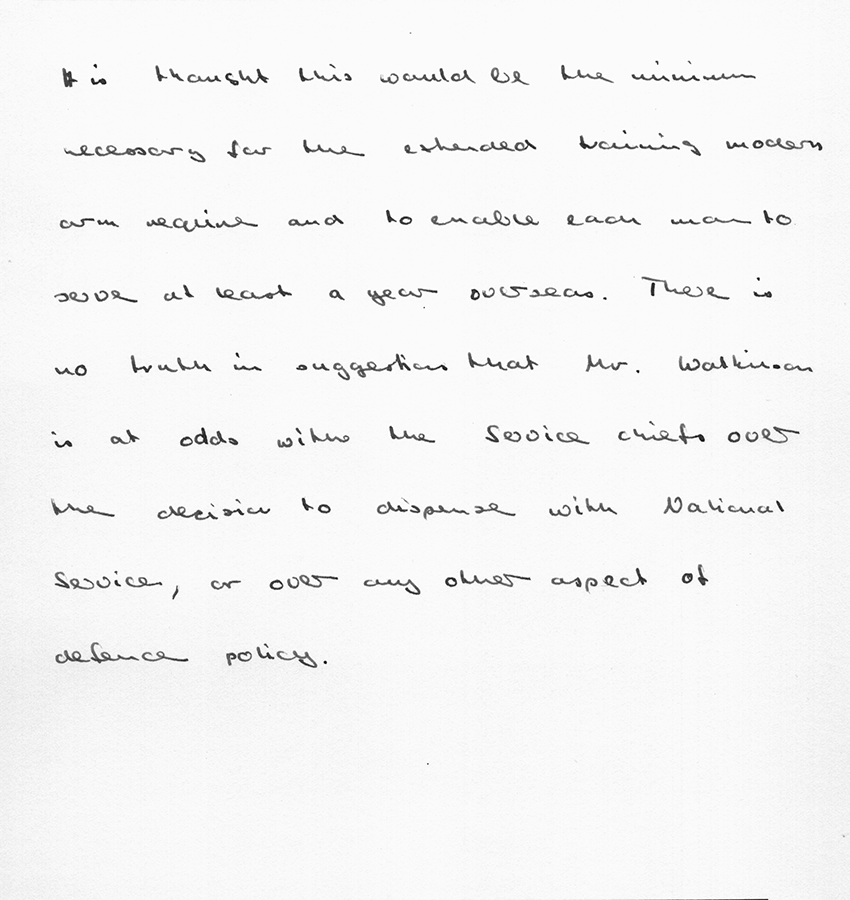 It is thought this would be the minimum
necessary for the extended training modern
arm require and to enable each man to
serve at least a year overseas. There is
no truth in suggestion that Mr. Watkinson
is at odds with the Service chiefs over
the decision to dispense with National
Service, or over any other aspect of
defence policy.